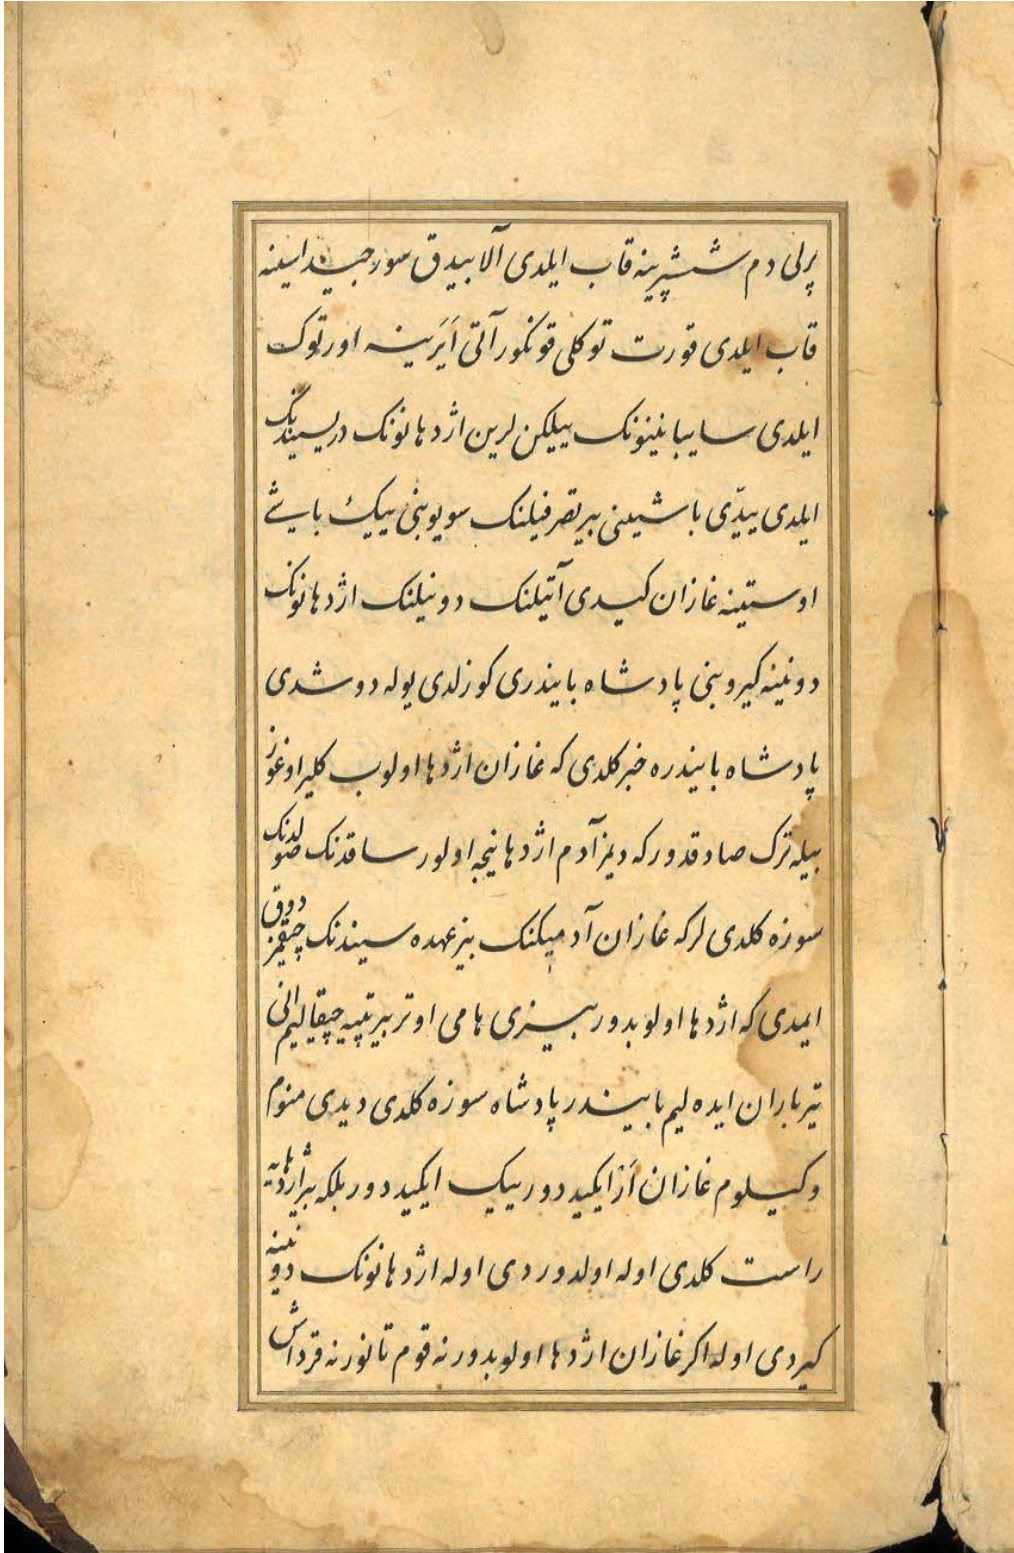 پرلی دم ششپرینه قاب ایلدی آلا بیدق سور جیداسینه
قاب ایلدی قورت توکلی قونکور آتی اَیَرینه اورتوک
ایلدی سایبانینونک ییلکن لرین اژدهانونک دریسیندنک
ایلدی ییدّی باشینی بیر تصرفیلنک سویوبنی ییک باشی
اوستینه غازان کیدی آتیلنک دونیلنک اژدهانونک
دونینه کیروبنی پادشاه بایندری کوزلدی یوله دوشدی
پادشاه بایندره خبر کلدی که غازان اژدها اولوب کلیر اوغوز
بیله ترک صادقدور که دیمز آدم اژدها نیجه اولور ساقدنک صولدنک
سوزه کلدی لر که غازان آدمیکنک بیز عهده سیندنک چیقمزدوق
ایمدی که اژدها اولوبدور بیزی هامی اوتر بیر تپیه چیقالیم انی
تیرباران ایده لیم بایندر پادشاه سوزه کلدی دیدی منوم
وکیلوم غازان اَرْ ایکیددور ییک ایکیددور بلکه بیر اژدهایه
راست کلدی اوله اولدوردی اوله اژدهانونک دونینه
کیردی اوله اکر غازان اژدها اولوبدور نه قوم تانور نه قرداش